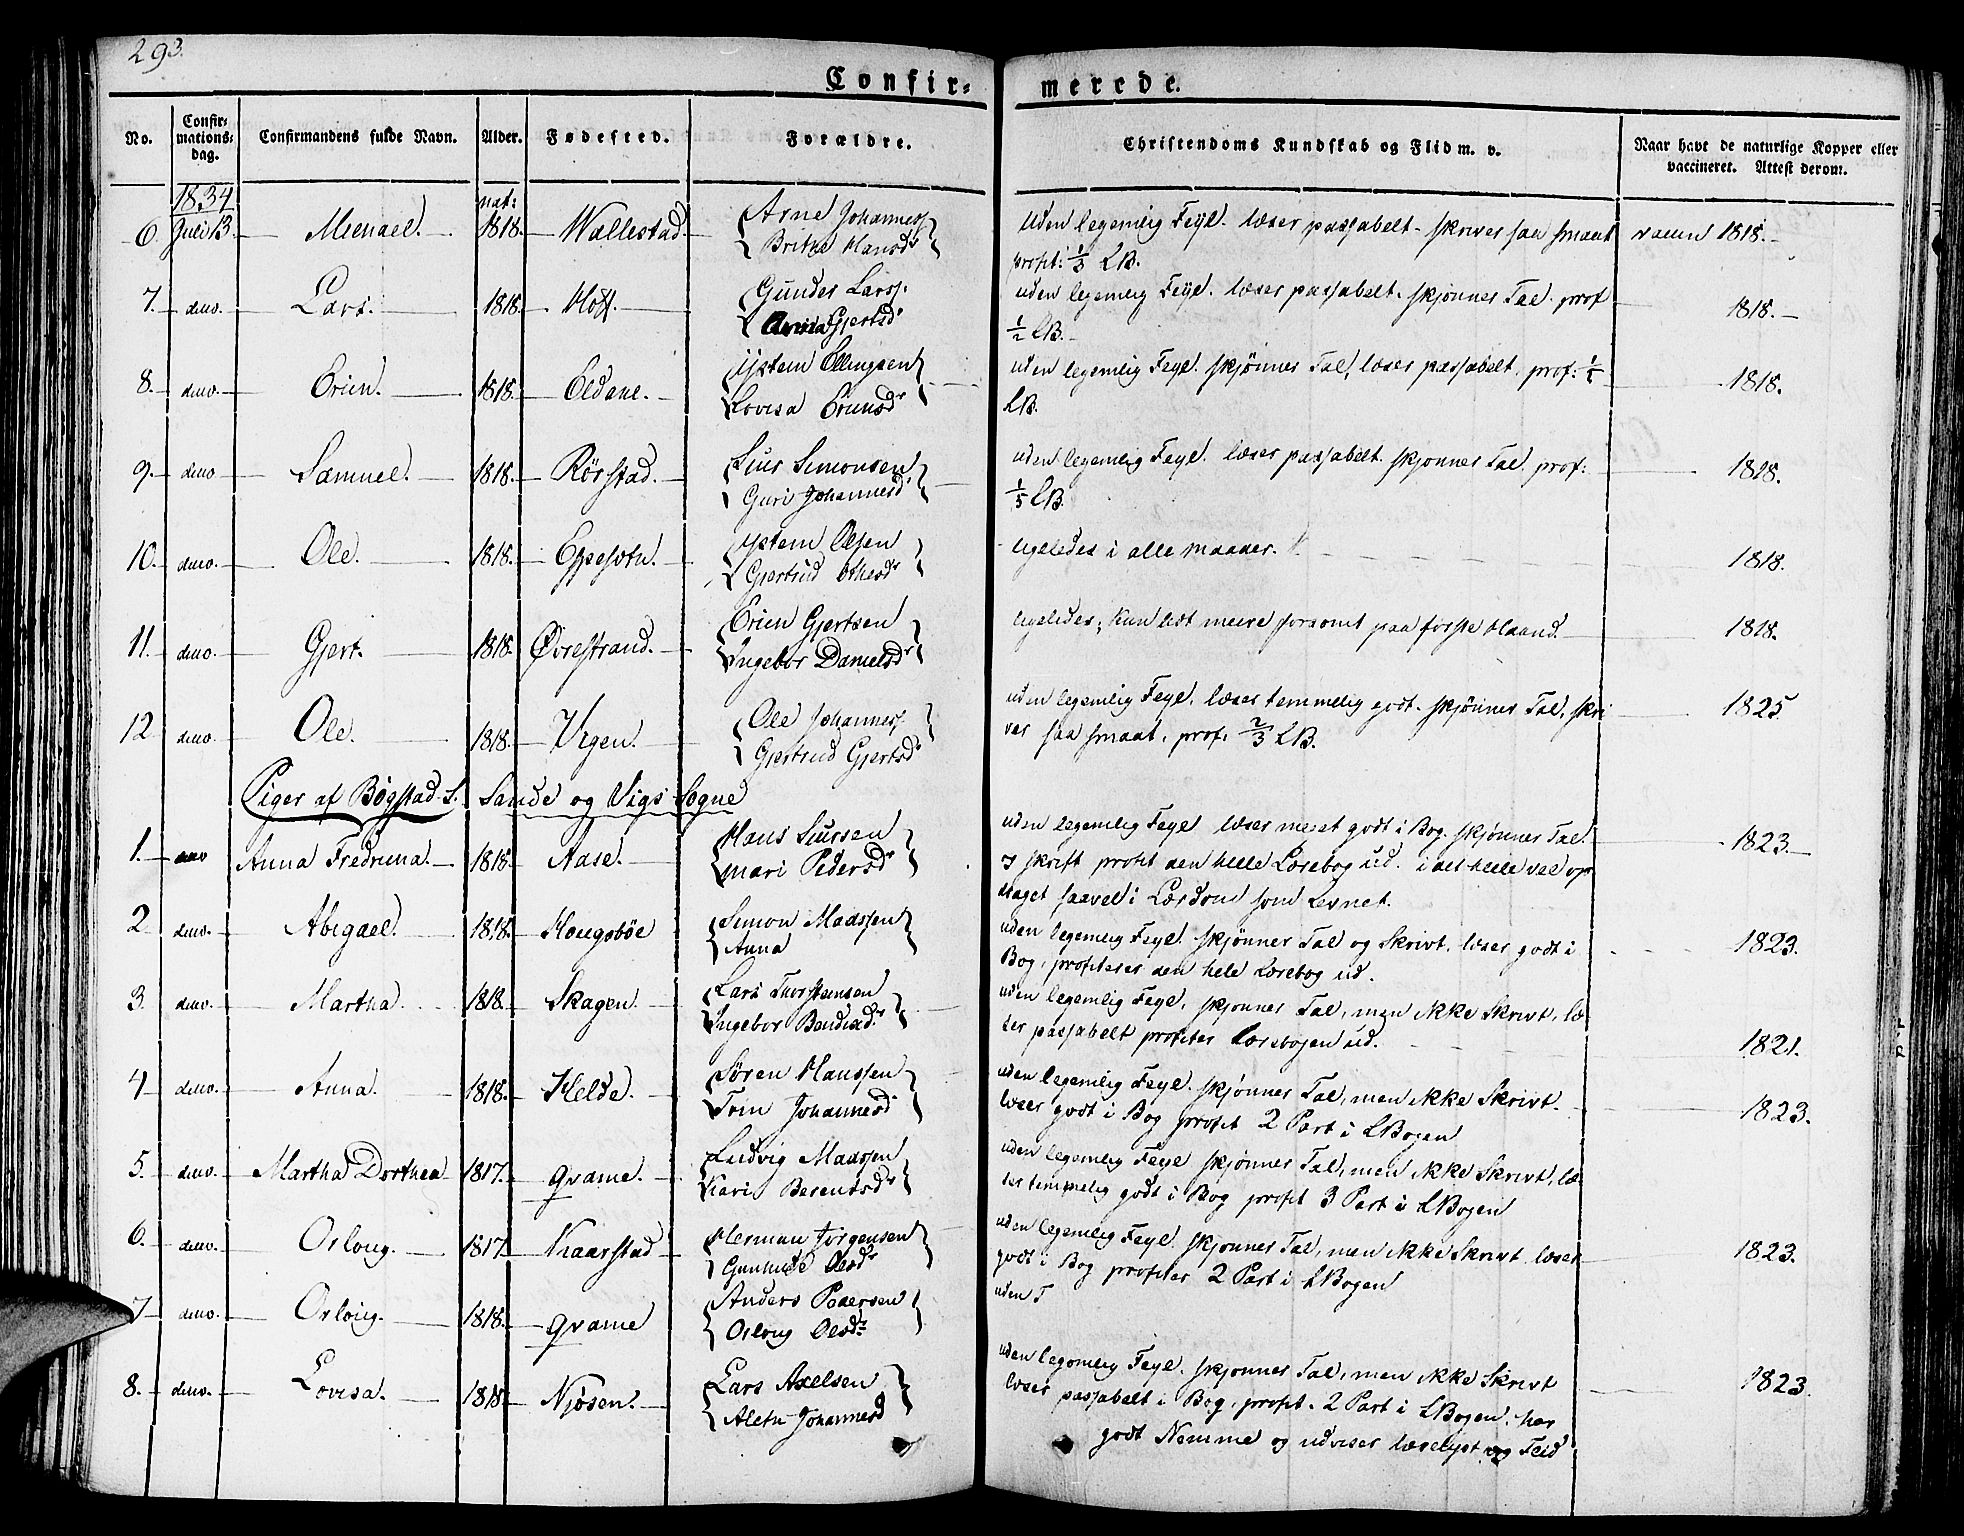 293.
Confir-
merede.
No.
Confir-
mations-
dag.
Confirmandens fulde Navn.
Alder.
Fødested.
Forældre.
Christendoms Kundskab og Flid m. v.
Naar havt de naturlige Kopper eller
vaccineret. Attest derom.
1834
nat:
6 Juli 13. Michael. 1818. Wallestad. Arne Johannesf.
Brithe Hansd.
uden legemlig Feyl. læser passabelt. skriver saa smaat
profit: 1/3 LB.
vaccin 1818.
7. dito. Lars. 1818. Hoff. Gunder Larsf.
Anna Gjertsd.
uden legemlig Feyl. læser passabelt. skjønner Tal. prof
1/2 LB.
1818.
8. dito. Erien. 1818. Eldane. Ystein Ellingsen
Lovisa Eriensd.
uden legemlig Feyl. skjønner Tal, læser passabelt. prof:
LB.
1818.
9. dito Samuel. 1818. Rörstad. Siur Simonsen
Guri Johannesd.
uden legemlig Feyl. læser passabelt. skjønner Tal. prof:
1/5 LB.
1818.
10. dito. Ole. 1818. Espesætn. Ystein Olsen
Gjertrud
ligeledes i alle maader.
1818.
11. dito. Gjert. 1818. Øvrestrand. Erien Gjertsen
Ingebor Danielsd.
ligeledes; kun lidt meere forsømt paa første Haand.
1818.
12 dito. Ole. 1818. Vegen. Ole Johannesf.
Gjertrud Gjertsd.
uden legemlig Feyl, læser temmelig godt. skjønner Tal, skri
ver saa smaat, prof. 2/3 LB.
1825.
Piger af Bøgstad S. Sande og Vigs Sogne
1. dito Anna Fredrina. 1818. Aase. Hans Siursen
Mari Pedersd.
uden legemlig Feyl læser meget godt i Bog. skjønner Tal.
og skrift profit den heele Lærebog ud. i det heele vel op
draget saavel i Lærdom som Levnet.
1823.
2 dito. Abigael. 1818. Kongsbøe Simon Madssen
Anna
uden legemlig Feyl. skjønner Tal og Skrivt. læser godt i
Bog, profiterer den hele Lærebog ud.
1823.
3 dito. Martha. 1818. Skagen. Lars Thorsteinsen
Ingebor
uden legemlig Feyl, skjønner Tal, men ikke Skrivt, læ
ser passabelt profiter Lærebogen ud.
1821.
4 dito. Anna. 1818. Kelde. Søren Hanssen
Johannesd
uden legemlig Feyl. skjønner Tal, men ikke Skrivt.
læser godt i Bog profit 2 Part i LBogen
1823.
5. dito. Martha Dorthea 1817. qvame. Ludvig Madssen
Kari Berentsd.
uden legemlig Feyl skjønner Tal, men ikke Skrivt, læ
ser temmelig godt i Bog profit 3 Part i LBogen
6. dito. Orloug. 1817. Kaarstad Herman Jørgensen
Gunhilde Olsd.
uden legemlig Feyl. skjønner Tal, men ikke Skrivt læser
godt i Bog profiter 2 Part i LBogen
1823.
7 dito. Orloug. 1818. qvame Anders Pedersen
Orloug Olsd.
uden F
8. dito. Lovisa. 1818. Njøsen. Lars Axelsen
Johannesd
uden legemlig Feyl. skjønner Tal, men ikke Skrivt
læser passabelt i Bog, profit. 2 Part i LBogen. har
godt Nemme og udviser læselyst og Flid
1823.